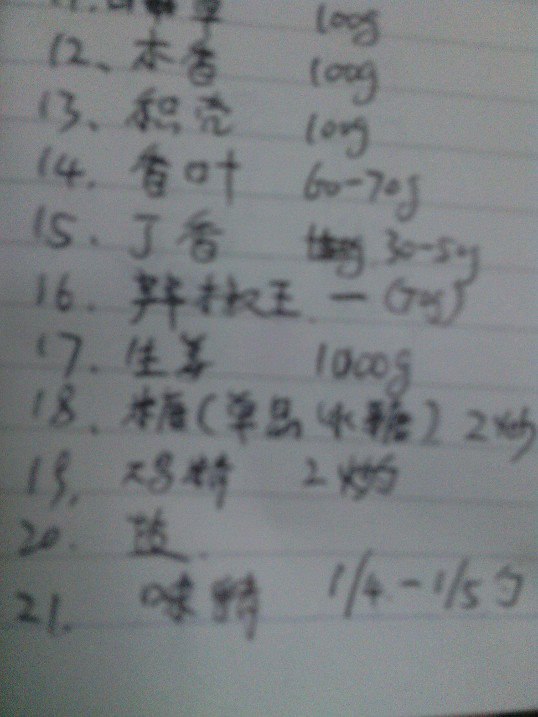 12、木香 100g
13、积壳 10g
14. 香叶 60-70g
15. 丁香 30-50g
16. 辣椒王 一
17. 生姜 1000g
18、糖(单晶冰糖) 2
19, 鸡精 2
20. 盐
21. 味精 1/4-1/5勺